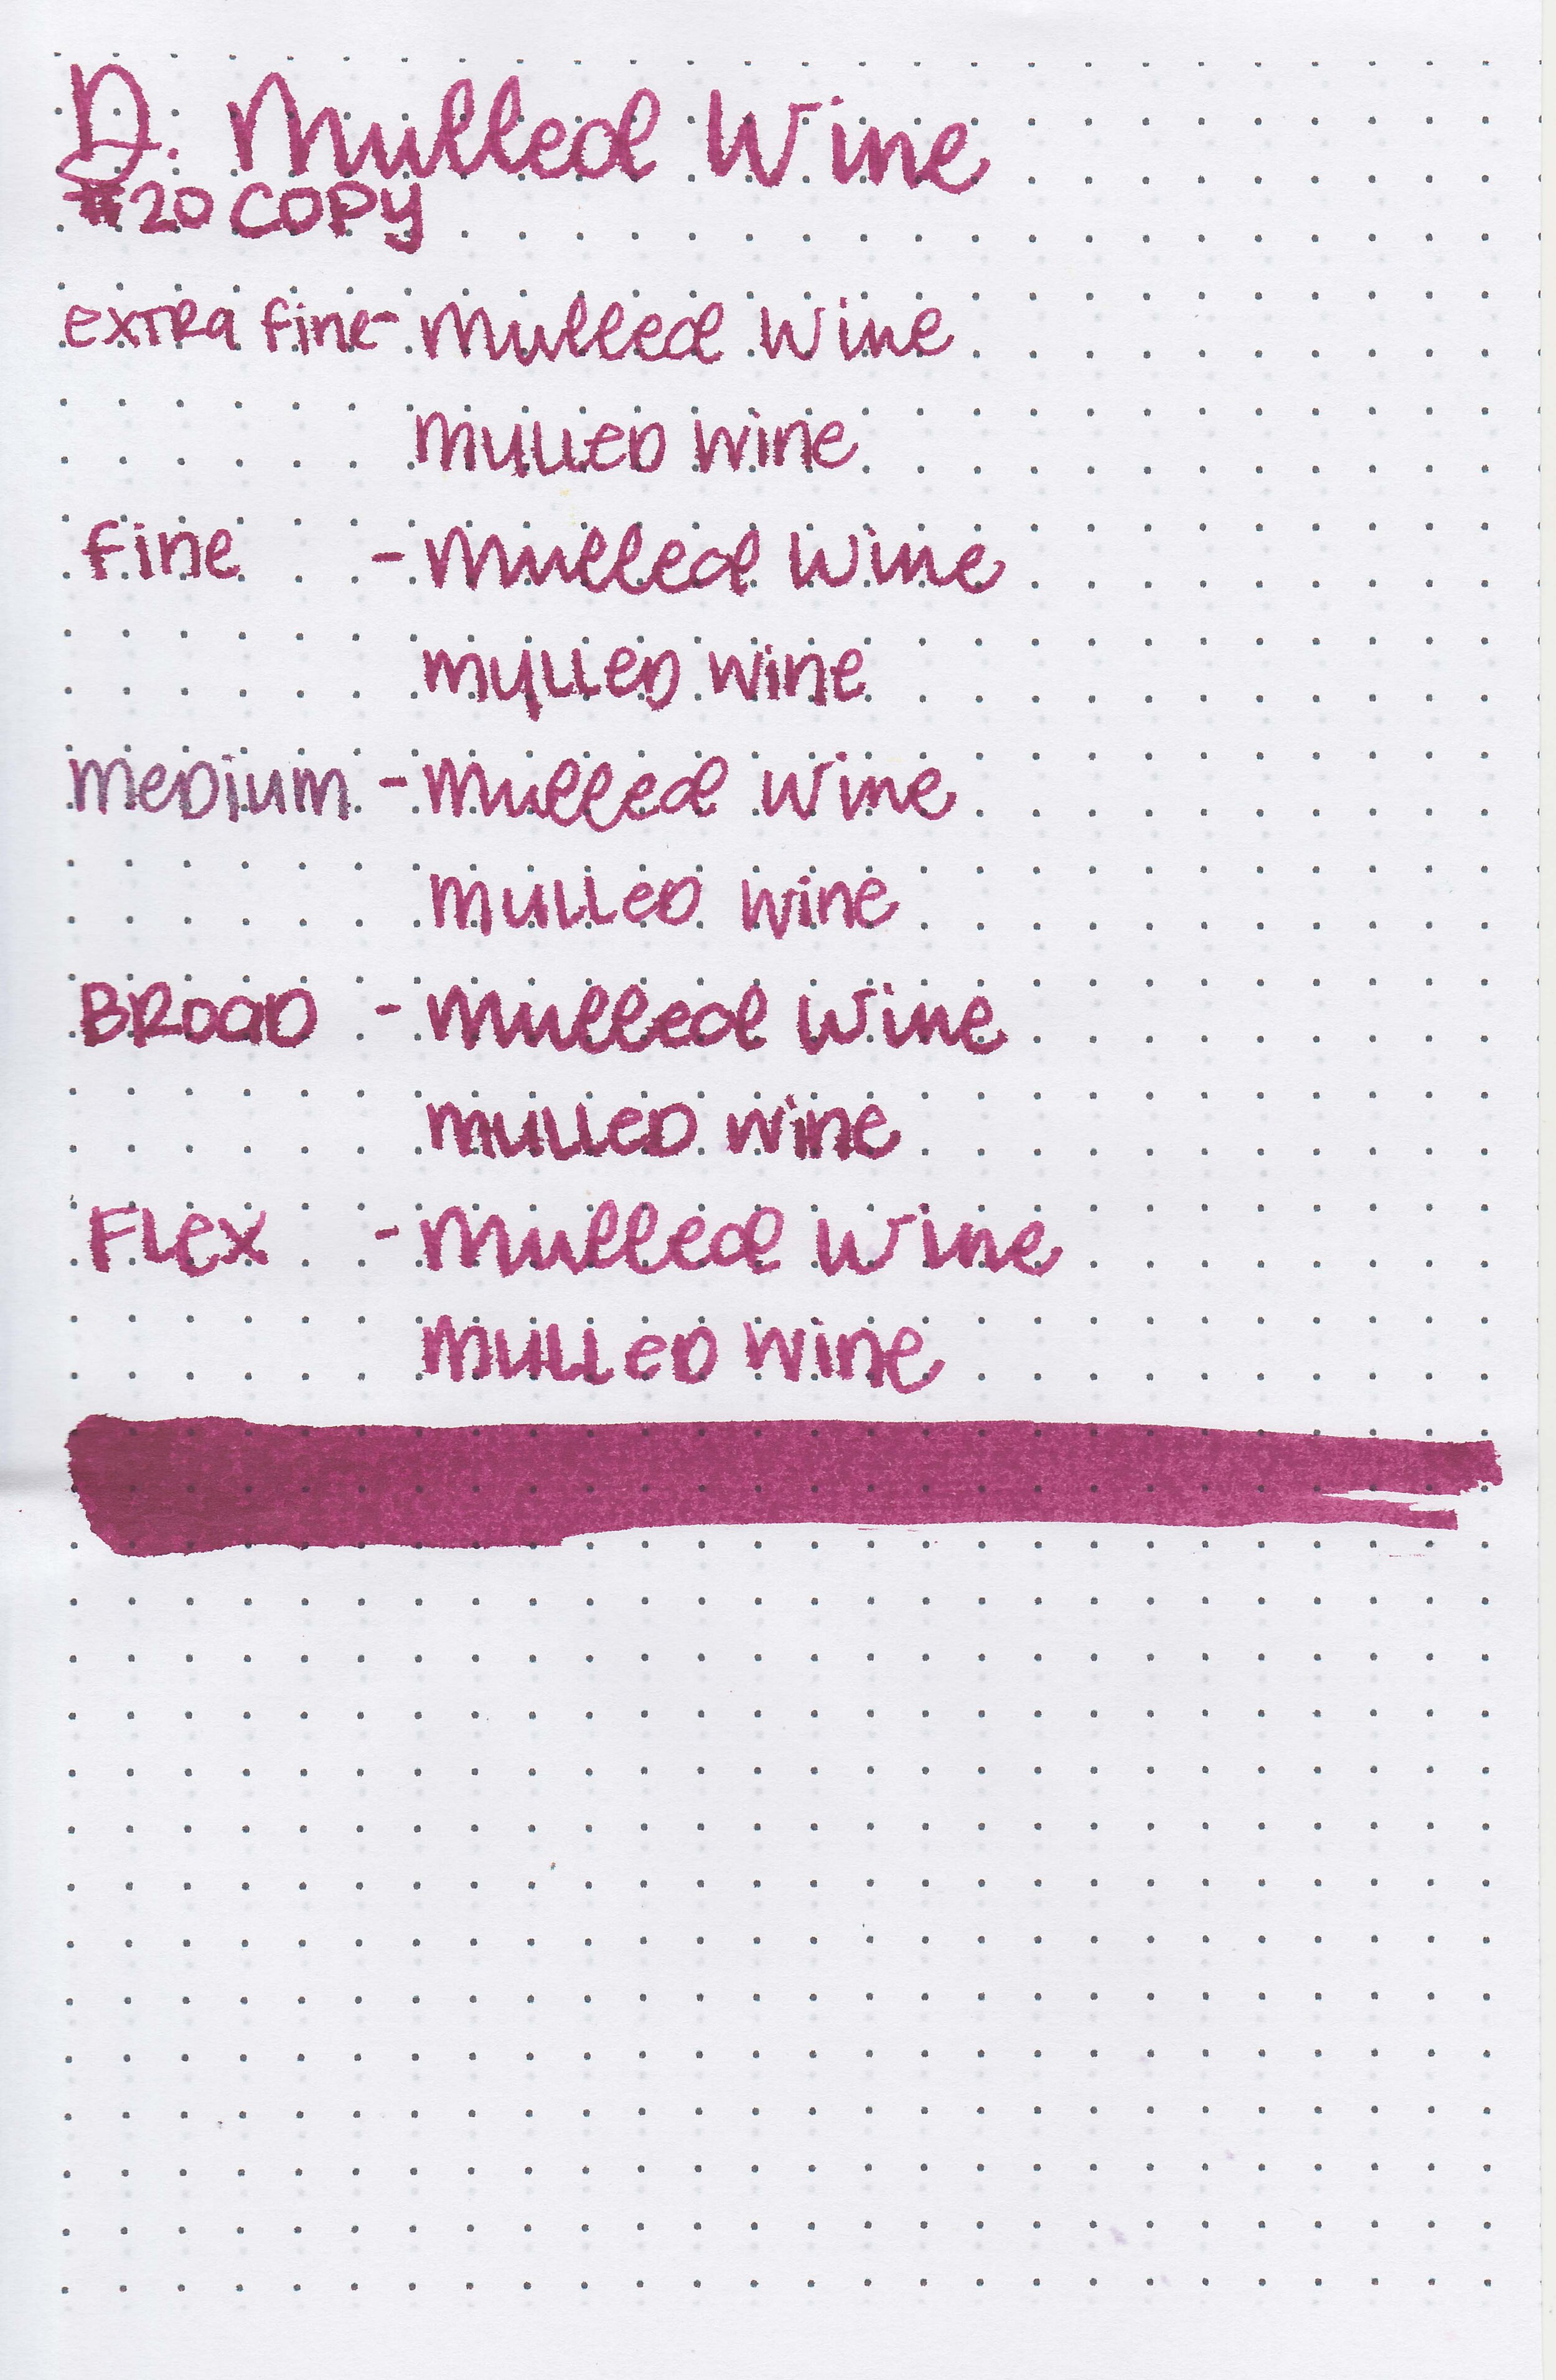 D. Mulled Wine
#20 COPY
extra fine - Mulled Wine
mulled wine
fine - Mulled Wine
mulled wine
medium - Mulled Wine
mulled wine
Broad - Mulled Wine
mulled wine
Flex - Mulled Wine
mulled wine